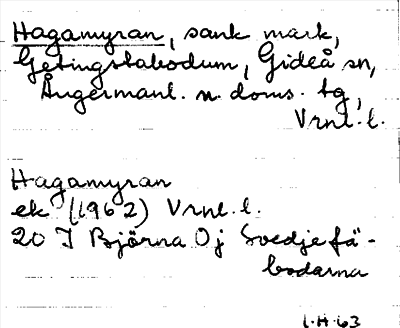 Hagamyran, sank mark,
Getingstabodum, Gideå sn,
Ångermanl. n. doms. tg,
Vrnl. l.
Hagamyran
ek (1962) Vrnl. l.
20 I Björna 0 j Svedjefä-
bodarna
l. H. 63